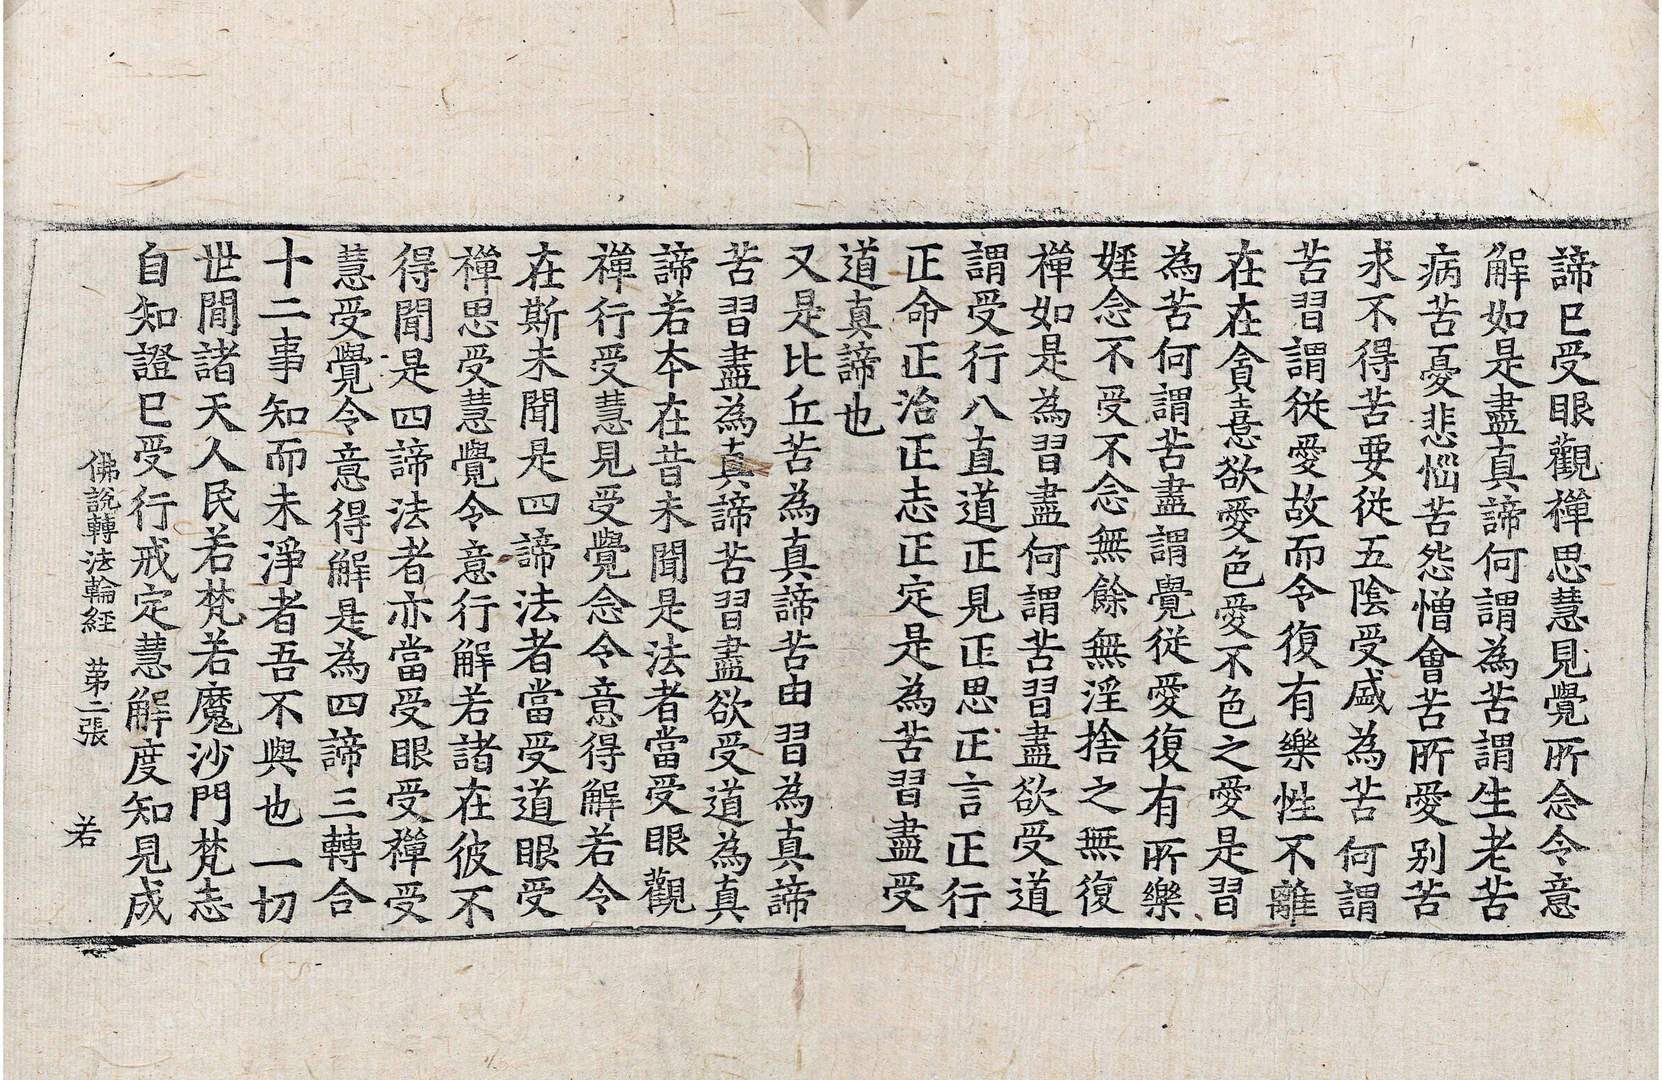 諦已受眼觀禪思慧見覺所念令意
解如是盡真諦何謂為苦謂生老苦
病苦憂悲惱苦怨憎會苦所愛別苦
求不得苦要從五陰受盛為苦何謂
苦習謂從愛故而令復有樂性不離
在在貪憙欲愛色愛不色之愛是習
為苦何謂苦盡謂覺從愛復有所樂
婬念不受不念無餘無淫捨之無復
禪如是為習盡何謂苦習盡欲受道
謂受行八直道正見正思正言正行
正命正治正志正定是為苦習盡受
道真諦也
又是比丘苦為真諦苦由習為真諦
苦習盡為真諦苦習盡欲受道為真
諦若本在昔未聞是法者當受眼觀
禪行受慧見受覺念令意得解若令
在斯未聞是四諦法者當受道眼受
禪思受慧覺令意行解若諸在彼不
得聞是四諦法者亦當受眼受禪受
慧受覺令意得解是為四諦三轉合
十二事知而未淨者吾不與也一切
世間諸天人民若梵若魔沙門梵志
自知證已受行戒定慧解度知見成
佛說轉法輪經 第二張 若